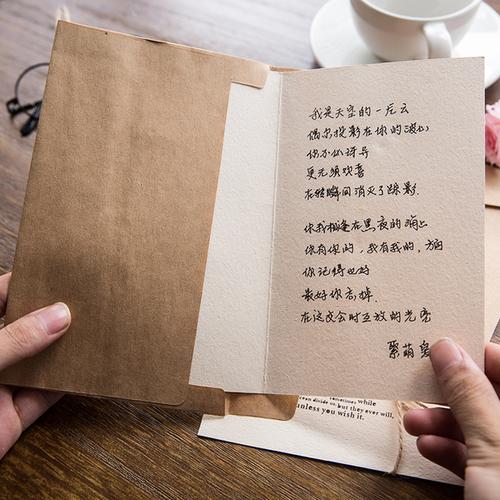 我是天空的一片云
偶尔投影在你的波心
你不必讶异
更无须欢喜
在转瞬间消灭了踪影
你我相逢在黑夜的海上
你有你的，我有我的，方向
你记得也好
最好你忘掉
在这交会时互放的光亮
紫萌
sometimes while
ocean divide us, but they ever will,
unless you wish it.